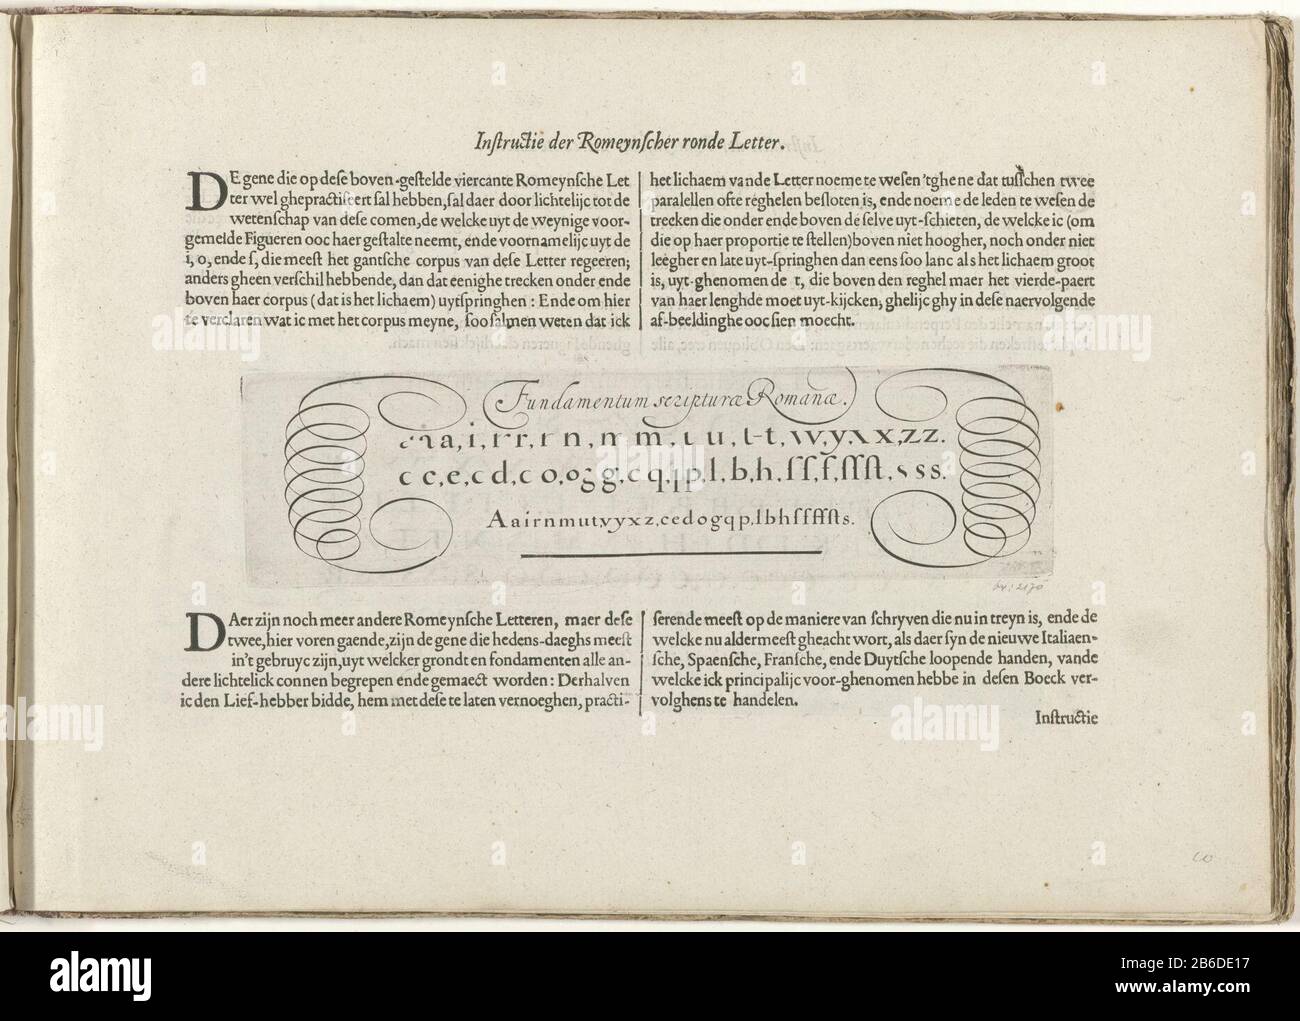 Inſtructie der Romeynſcher ronde Letter.
DE gene die op deſe boven-geſtelde viercante Romeynſche Let
ter wel ghepractiſeert ſal hebben, ſal daer door lichtelijc tot de
wetenſchap van deſe comen, de welcke uyt de weynige voor-
gemelde Figueren ooc haer geſtalte neemt, ende voornamelijc uyt de
i, o, ende ſ, die meeſt het gantſche corpus van deſe Letter regeeren;
anders gheen verſchil hebbende, dan dat eenighe trecken onder ende
boven haer corpus (dat is het lichaem) uytſpringhen : Ende om hier
te verclaren wat ic met het corpus meyne, ſoo ſalmen weten dat ick
het lichaem vande Letter noeme te weſen 'tghene dat tuſſchen twee
paralellen ofte reghelen beſloten is, ende noeme de leden te weſen de
trecken die onder ende boven de ſelve uyt-ſchieten, de welcke ic (om
die op haer proportie te ſtellen) boven niet hoogher, noch onder niet
leegher en late uyt-ſpringhen dan eens ſoo lanc als het lichaem groot
is, uyt-ghenomen de t, die boven den reghel maer het vierde-paert
van haer lenghde moet uyt-kijcken; ghelijc ghy in deſe naervolgende
af-beeldinghe ooc ſien moecht.
Fundamentum scripturæ Romanæ.
a, i, r r, r n, n m, u, t, w, y, x, z z.
c c, e, c d, c o, o g g, c q, p, l, b, h, ſ ſ, f, ſſ ſt, s s s.
A a i r n m u t v y x z, c e d o g q p, l b h ſ f ſſ ſt s.
DAer zijn noch meer andere Romeynſche Letteren, maer deſe
twee, hier voren gaende, zijn de gene die hedens-daeghs meeſt
in't gebruyc zijn, uyt welcker grondt en fondamenten alle an-
dere lichtelick connen begrepen ende gemaect worden : Derhalven
ic den Lief-hebber bidde, hem met deſe te laten vernoeghen, practi-
ſerende meeſt op de maniere van ſchryven die nu in treyn is, ende de
welcke nu aldermeeſt gheacht wort, als daer ſyn de nieuwe Italiaen-
ſche, Spaenſche, Franſche, ende Duytſche loopende handen, vande
welcke ick principalijc voor-ghenomen hebbe in deſen Boeck ver-
volghens te handelen.
Inſtructie
alamy
Image ID: 2B6DE17
www.alamy.com